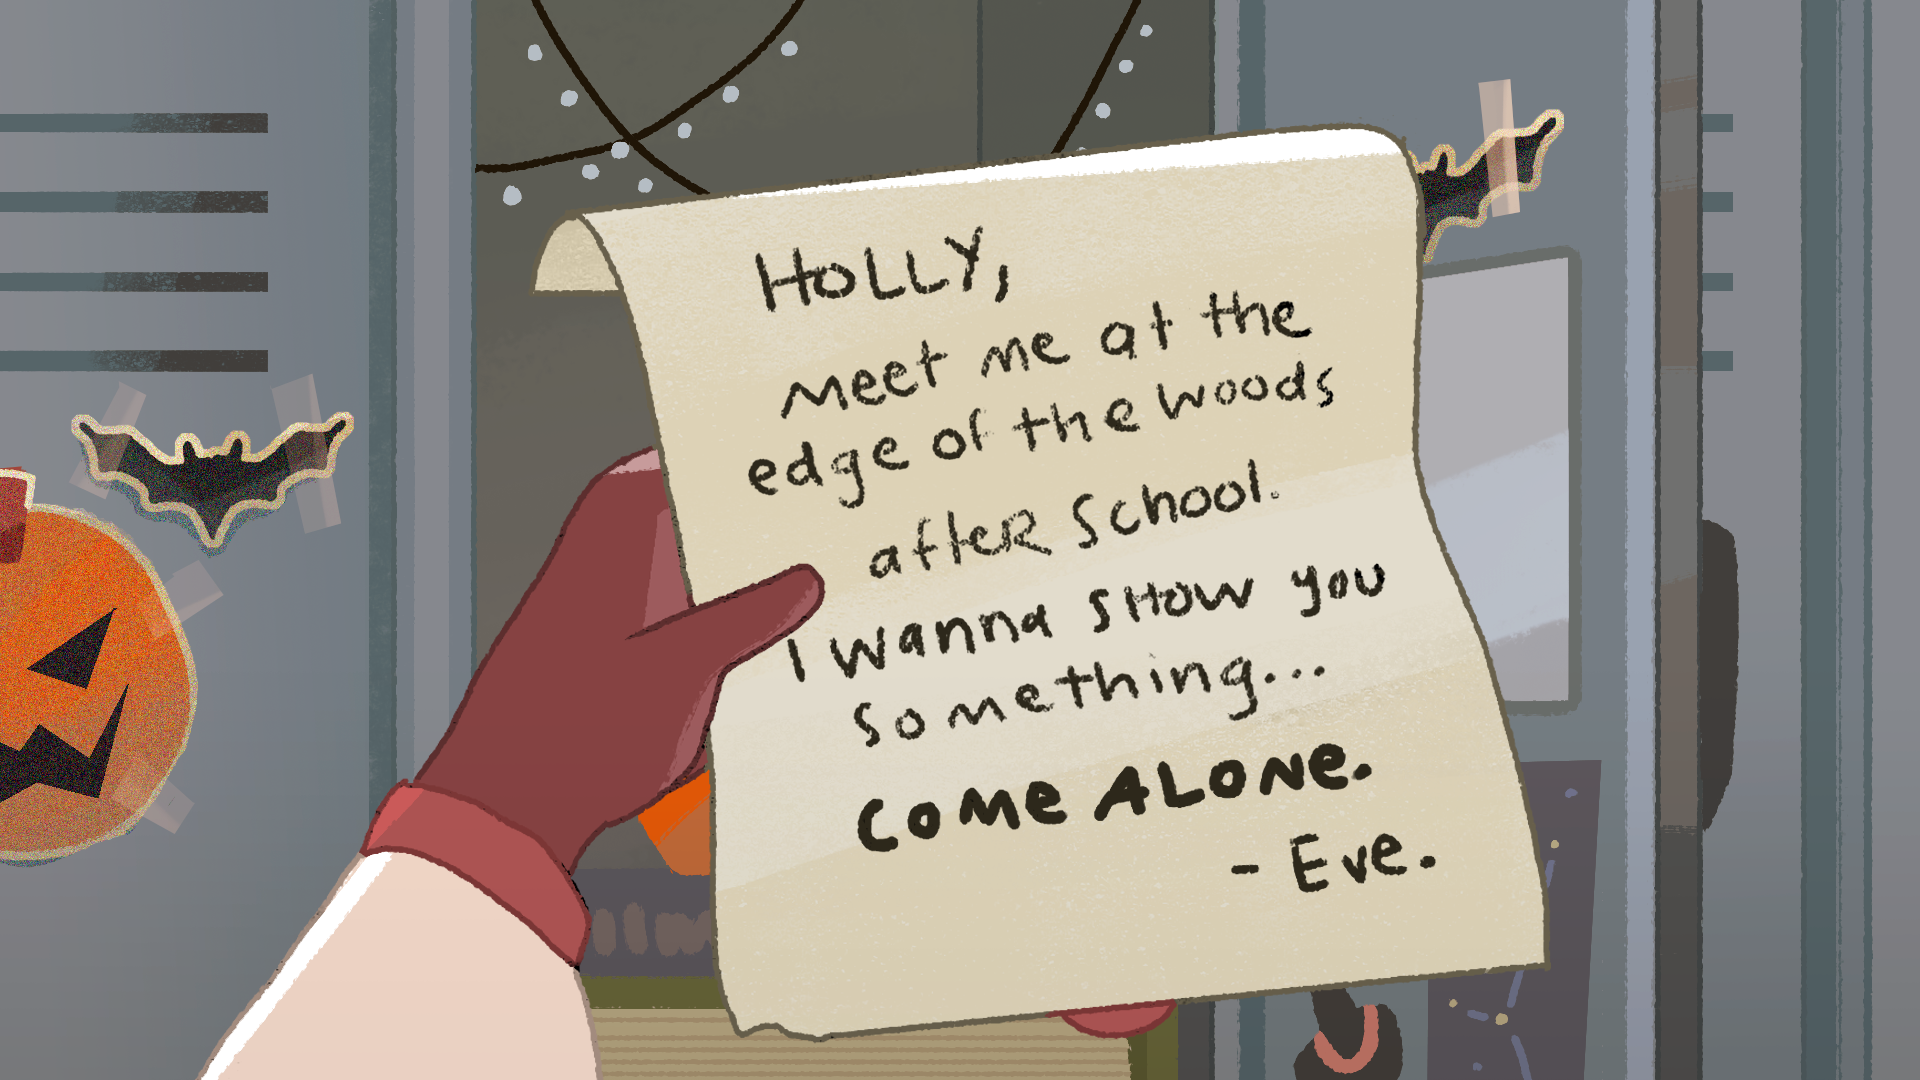 HOLLY,
meet me at the
edge of the woods
after School.
I wanna SHow you
something...
CoMe ALoNe.
- Eve.